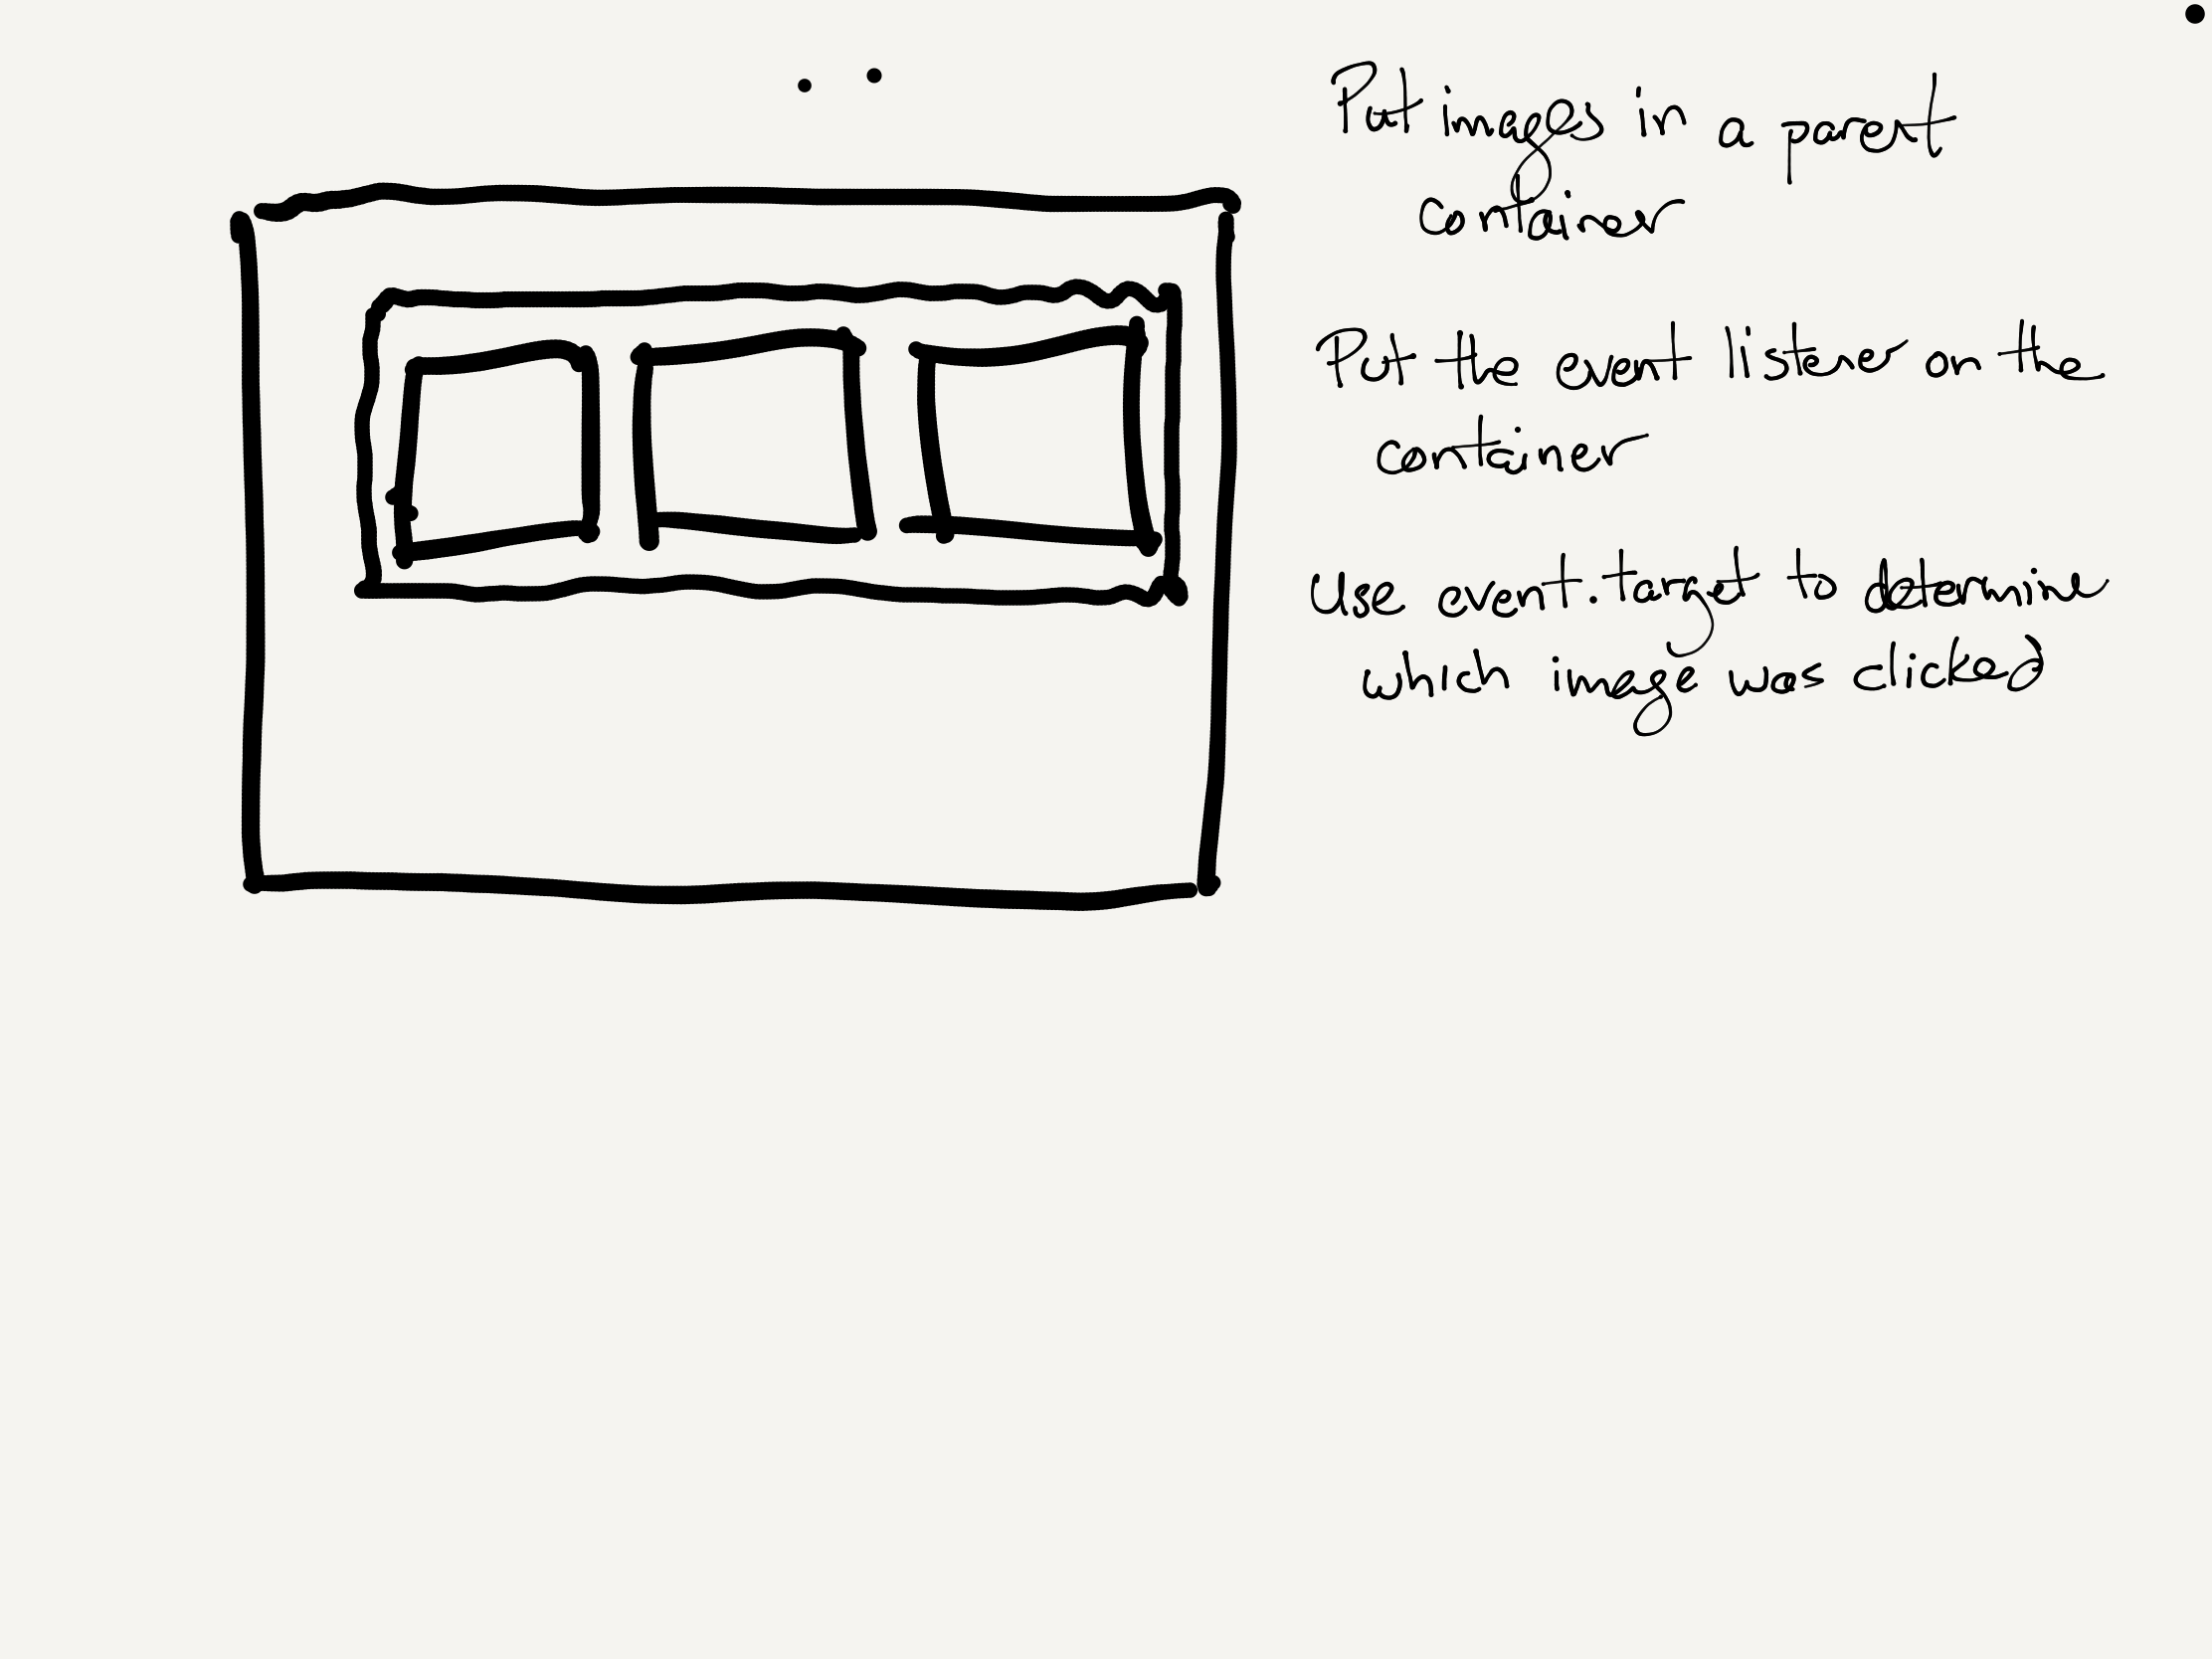 Put images in a parent
container
Put the event listener on the
container
Use event.target to determine
which image was clicked